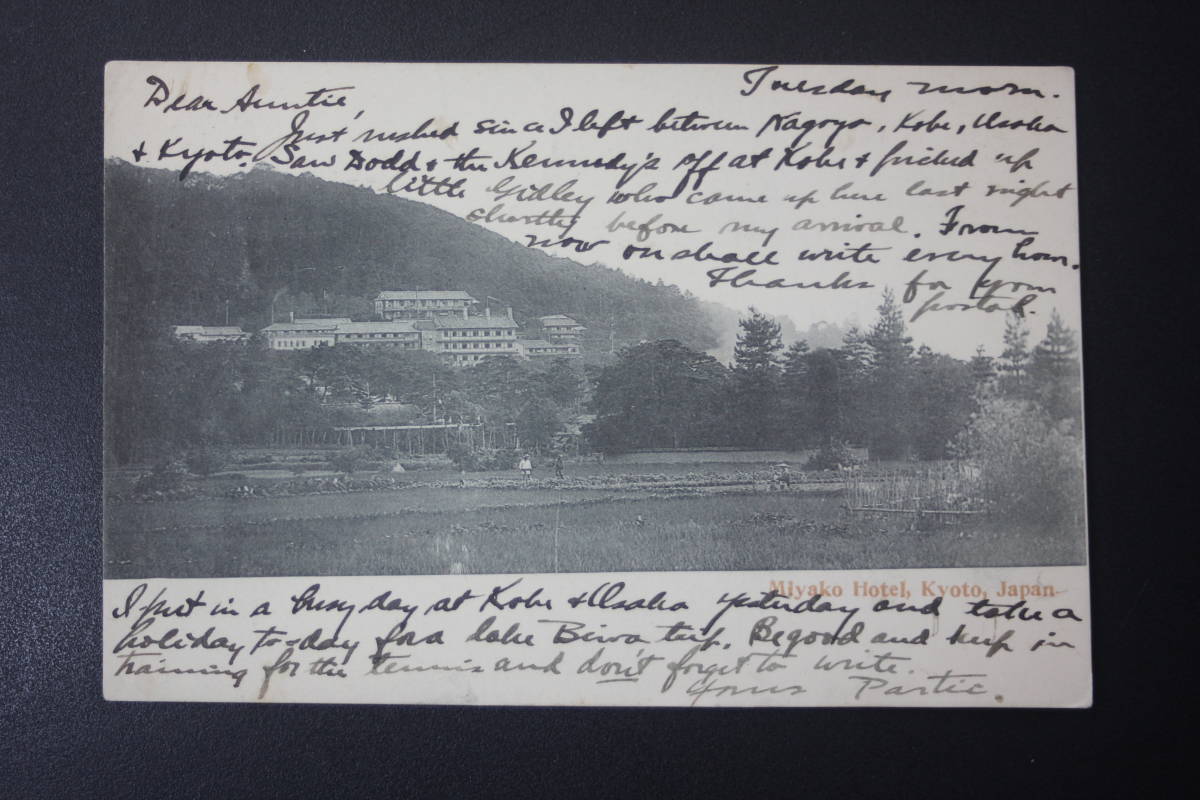 Tuesday morn.
Dear Auntie,
Just rushed since I left between Nagoya, Kobe, Osaka
& Kyoto. Saw Dodd & the Kennedy's off at Kobe & picked up
little Gidley who came up here last night
shortly before my arrival. From
now on shall write every hour.
Thanks for your
postal.
Miyako Hotel, Kyoto, Japan
I put in a busy day at Kobe & Osaka yesterday and take a
holiday to-day for a lake Biwa trip. Be good and keep in
training for the tennis and don't forget to write.
Yours Partie.